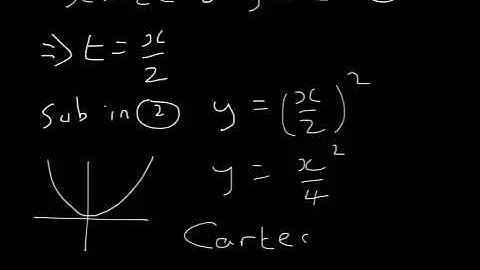 ⇒ t = x/2
Sub in ② y = (x/2)²
y = x²/4
Carte